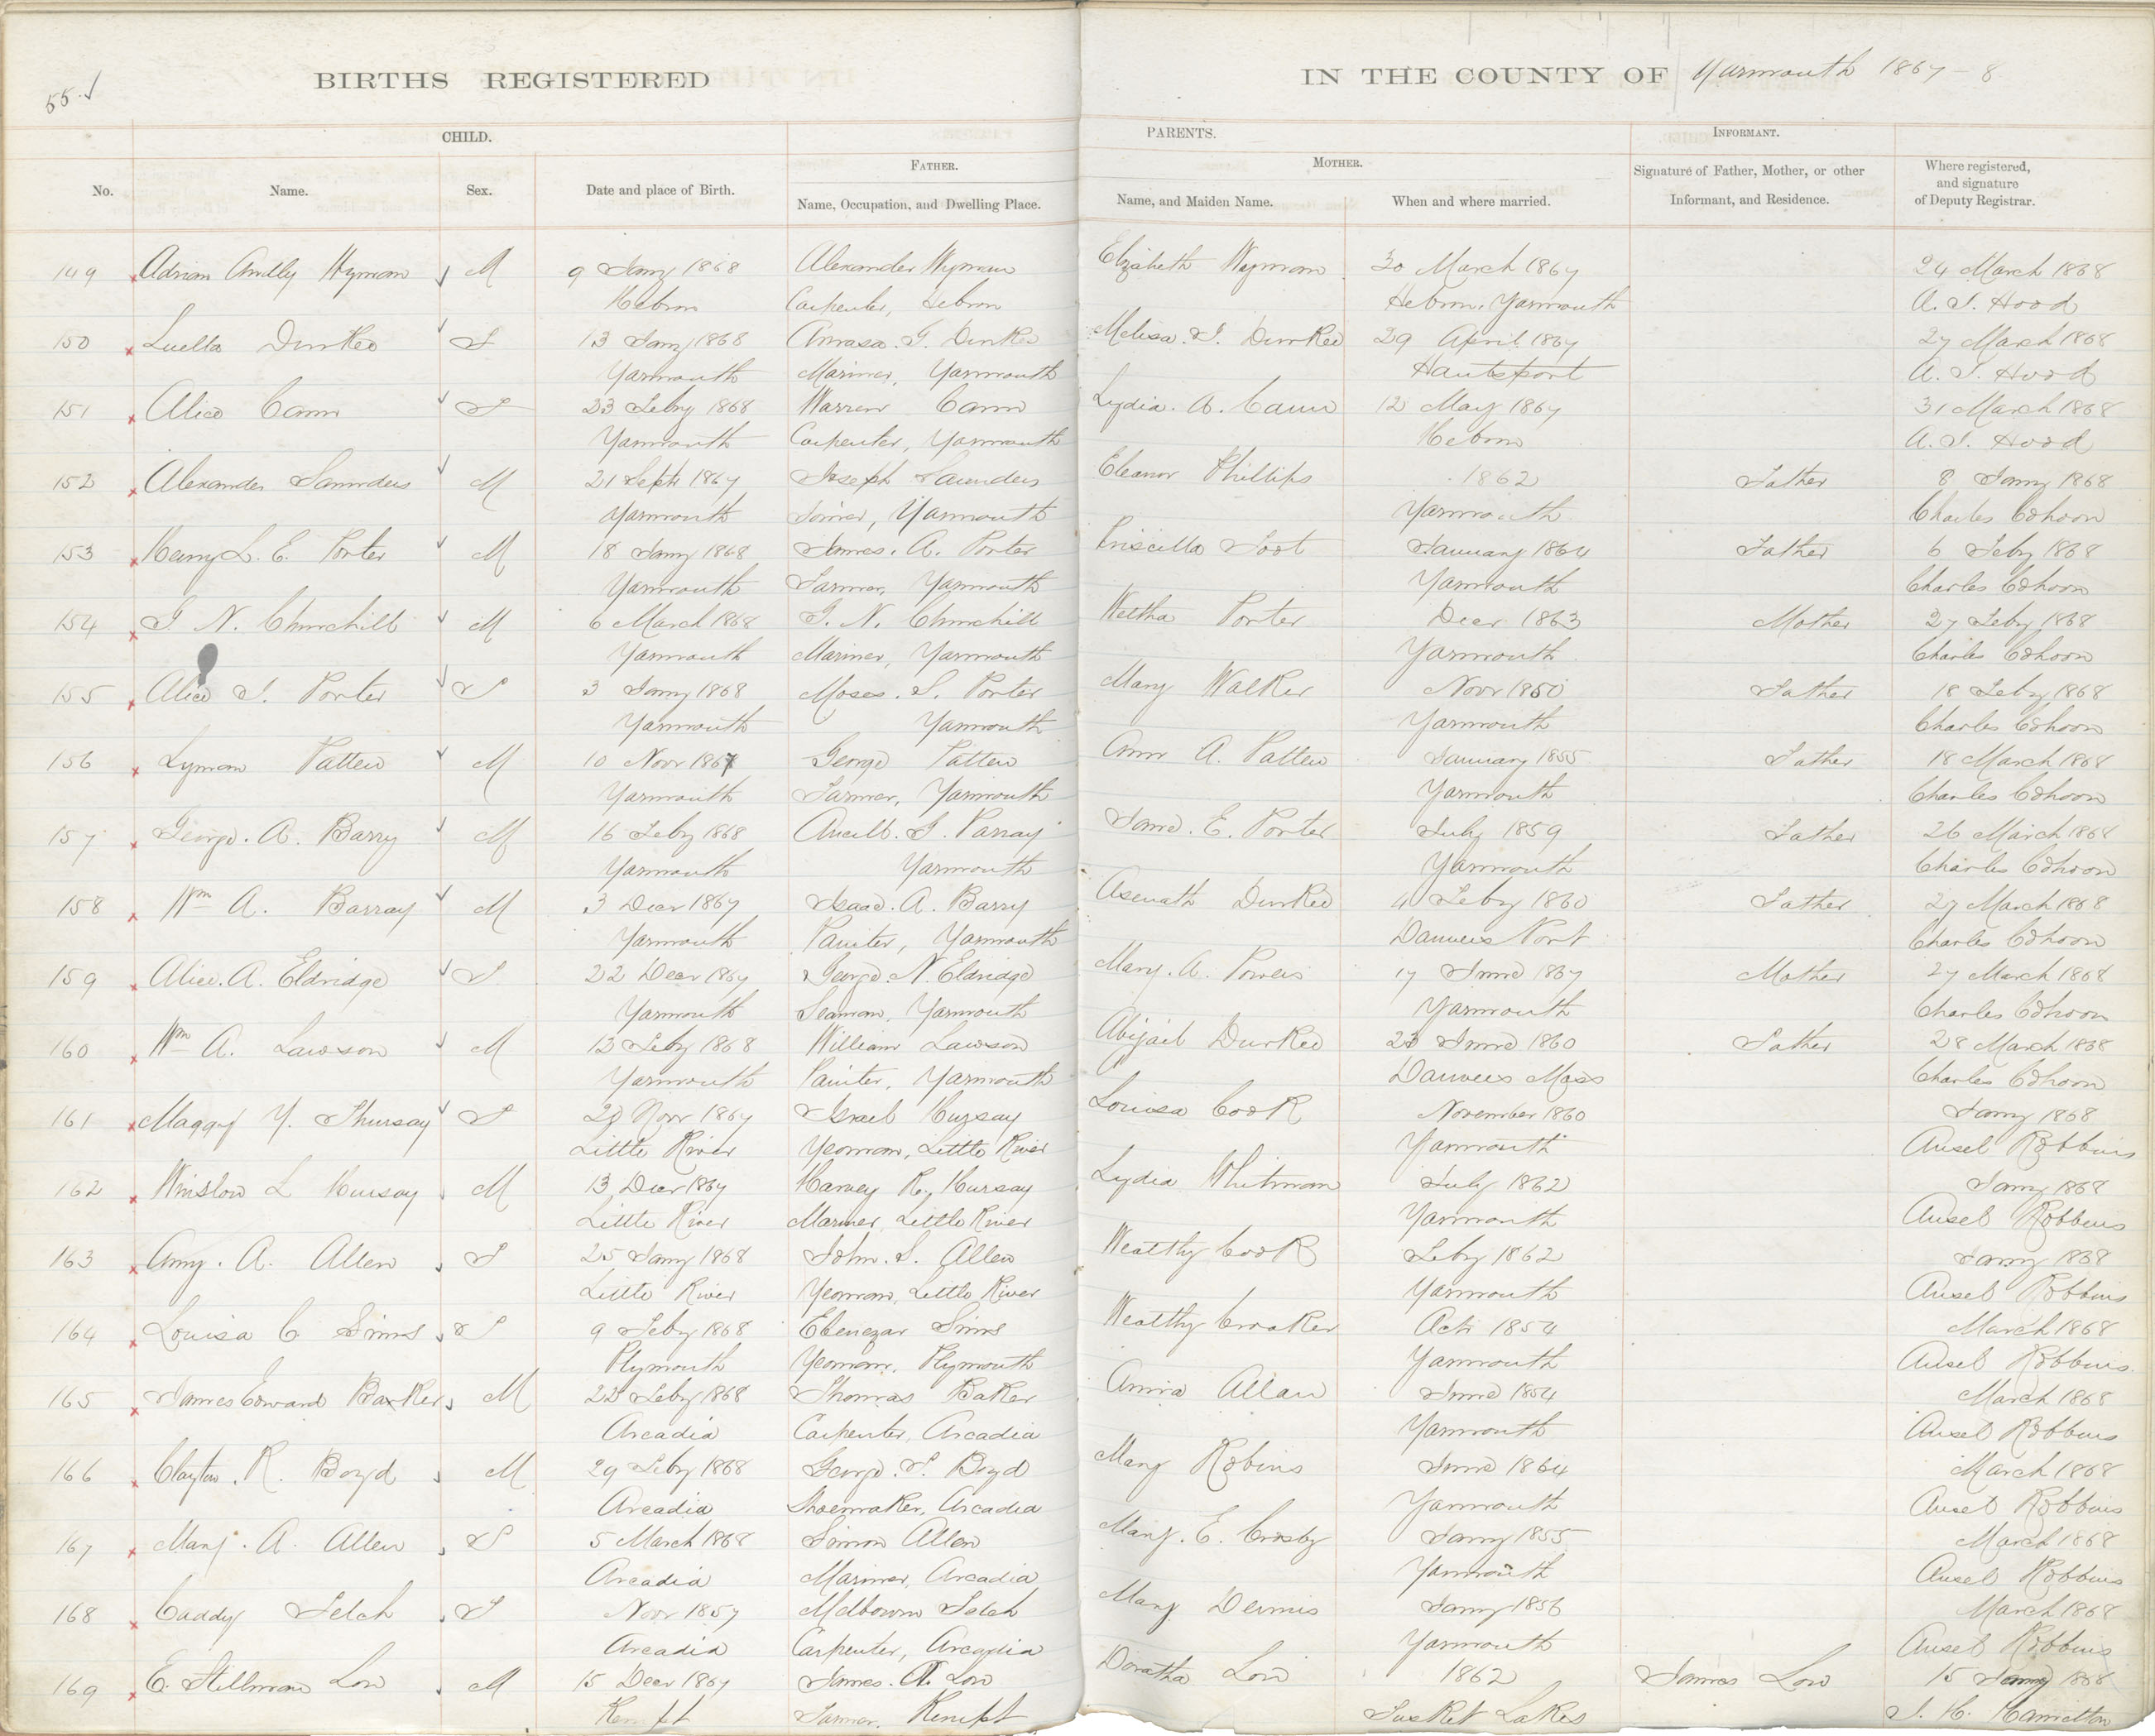 55.
BIRTHS REGISTERED IN THE COUNTY OF Yarmouth 1867-8
CHILD. PARENTS. INFORMANT.
FATHER. MOTHER.
No. Name. Sex. Date and place of Birth. Name, Occupation, and Dwelling Place. Name, and Maiden Name. When and where married. Signature of Father, Mother, or other Informant, and Residence. Where registered, and signature of Deputy Registrar.
149 Adrian Wyman M 9 Jany 1868 Alexander Wyman Elizabeth Wyman 30 March 1867 24 March 1868
Hebron Carpenter, Hebron Hebron, Yarmouth A. J. Hood
150 Luella Durkee F 13 Jany 1868 Amasa. G. Durkee Melisa. J. Durkee 29 April 1867 27 March 1868
Yarmouth Mariner, Yarmouth Hantsport A. J. Hood
151 Alice Cann F 23 Feby 1868 Warren Cann Lydia. A. Cann 12 May 1867 31 March 1868
Yarmouth Carpenter, Yarmouth Hebron A. J. Hood
152 Alexander Saunders M 21 Sept 1867 Joseph Saunders Eleanor Phillips 1862 Father 8 Jany 1868
Yarmouth Joiner, Yarmouth Yarmouth Charles Cohoon
153 Harry L. E. Porter M 18 Jany 1868 James. A. Porter Priscilla Foot January 1864 Father 6 Feby 1868
Yarmouth Farmer, Yarmouth Yarmouth Charles Cohoon
154 G. N. Churchill M 6 March 1868 G. N. Churchill Weltha Porter Decr 1863 Mother 27 Feby 1868
Yarmouth Mariner, Yarmouth Yarmouth Charles Cohoon
155 Alice J. Porter F 3 Jany 1868 Moses. S. Porter Mary Walker Novr 1850 Father 18 Feby 1868
Yarmouth Yarmouth Yarmouth Charles Cohoon
156 Lyman Patten M 10 Novr 1867 George Patten Ann A. Patten January 1855 Father 18 March 1868
Yarmouth Farmer, Yarmouth Yarmouth Charles Cohoon
157 George. A. Barry M 16 Feby 1868 Ancill. G. Parray Jane. E. Porter July 1859 Father 26 March 1868
Yarmouth Yarmouth Yarmouth Charles Cohoon
158 Wm A. Barray M 3 Decr 1867 Isaac. A. Barry Asenath Durkee 4 Feby 1860 Father 27 March 1868
Yarmouth Painter, Yarmouth Danvers Port Charles Cohoon
159 Alice. A. Eldridge F 22 Decr 1867 George. N. Eldridge Mary. A. Powers 17 June 1867 Mother 27 March 1868
Yarmouth Seaman, Yarmouth Yarmouth Charles Cohoon
160 Wm A. Lawson M 13 Feby 1868 William Lawson Abijail Durkee 23 June 1860 Father 28 March 1868
Yarmouth Painter, Yarmouth Danvers Mass Charles Cohoon
161 Maggy Y. Thursay F Novr 1867 Israel Hursay Louisa Cook November 1860 Jany 1868
Little River Yeoman, Little River Yarmouth Ansel Robbins
162 Winslow L Hursay M 13 Decr 1867 Harvey R. Hursay Lydia Whitman July 1862 Jany 1868
Little River Mariner, Little River Yarmouth Ansel Robbins
163 Amy. A. Allen F 25 Jany 1868 John. S. Allen Wealthy Cook Feby 1862 Jany 1868
Little River Yeoman, Little River Yarmouth Ansel Robbins
164 Louisa C Sims F 9 Feby 1868 Ebenezar Sims Wealthy Crooker Oct 1854 March 1868
Plymouth Yeoman, Plymouth Yarmouth Ansel Robbins
165 James Edward Baxker M 22 Feby 1868 Thomas Baker Anna Allan June 1854 March 1868
Arcadia Carpenter, Arcadia Yarmouth Ansel Robbins
166 Clayton. R. Boyd M 29 Feby 1868 George. S. Boyd Mary Robins June 1864 March 1868
Arcadia Shoemaker, Arcadia Yarmouth Ansel Robbins
167 Mary. A. Allen F 5 March 1868 Simon Allen Mary. E. Crosby Jany 1855 March 1868
Arcadia Mariner, Arcadia Yarmouth Ansel Robbins
168 Caddy Felch F Novr 1857 Melbourn Felch Mary Dennis Jany 1856 March 1868
Arcadia Carpenter, Arcadia Yarmouth Ansel Robbins
169 E. Stillman Low M 15 Decr 1867 James. A. Low Doratha Low 1862 James Low 15 Jany 1868
Kempt Farmer, Kempt Tusket Lakes J. H. Hamilton